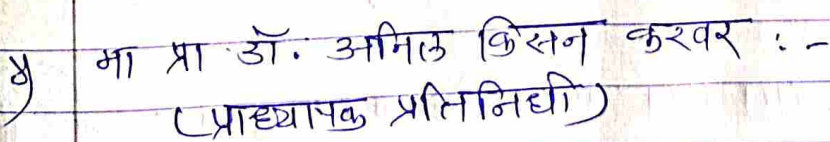 ५) मा प्रा डॉ. अनिल किसन कुरवर :-
(प्राध्यापक प्रतिनिधी)